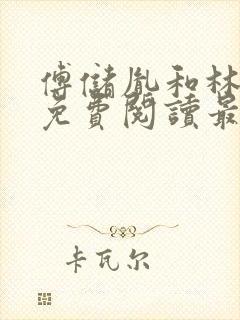 傅儲胤和林
免費閱讀最
卡瓦尔